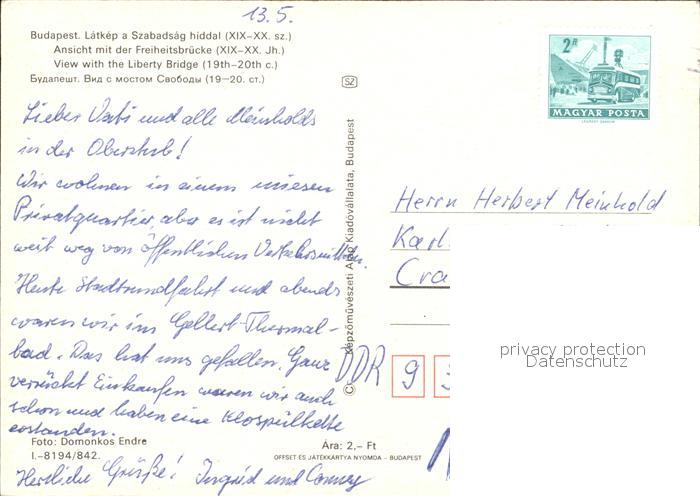 13.5.
Budapest. Látkép a Szabadság híddal (XIX–XX. sz.)
Ansicht mit der Freiheitsbrücke (XIX–XX. Jh.)
View with the Liberty Bridge (19th–20th c.)
Будапешт. Вид с мостом Свободы (19—20. ст.)
SZ
2 Ft
MAGYAR POSTA
Lieber Vati und alle Meinholds
in der Oberstub!
Wir wohnen in einem miesen
Privatquartier, aber es ist nicht
weit weg von öffentlichen Verkehrsmitteln.
Heute Stadtrundfahrt und abends
waren wir im Gellert-Thermal-
bad. Das hat uns gefallen. Ganz
verrückt Einkaufen waren wir auch
schon und haben eine Klospülkette
erstanden.
Herzliche Grüße! Ingrid und Conny
Foto: Domonkos Endre
I.–8194/842.
Ára: 2,– Ft
OFFSET ÉS JÁTÉKKÁRTYA NYOMDA – BUDAPEST
Képzőművészeti Alap Kiadóvállalata, Budapest
Herrn Herbert Meinhold
Karl
Cra
DDR 9
privacy protection
Datenschutz